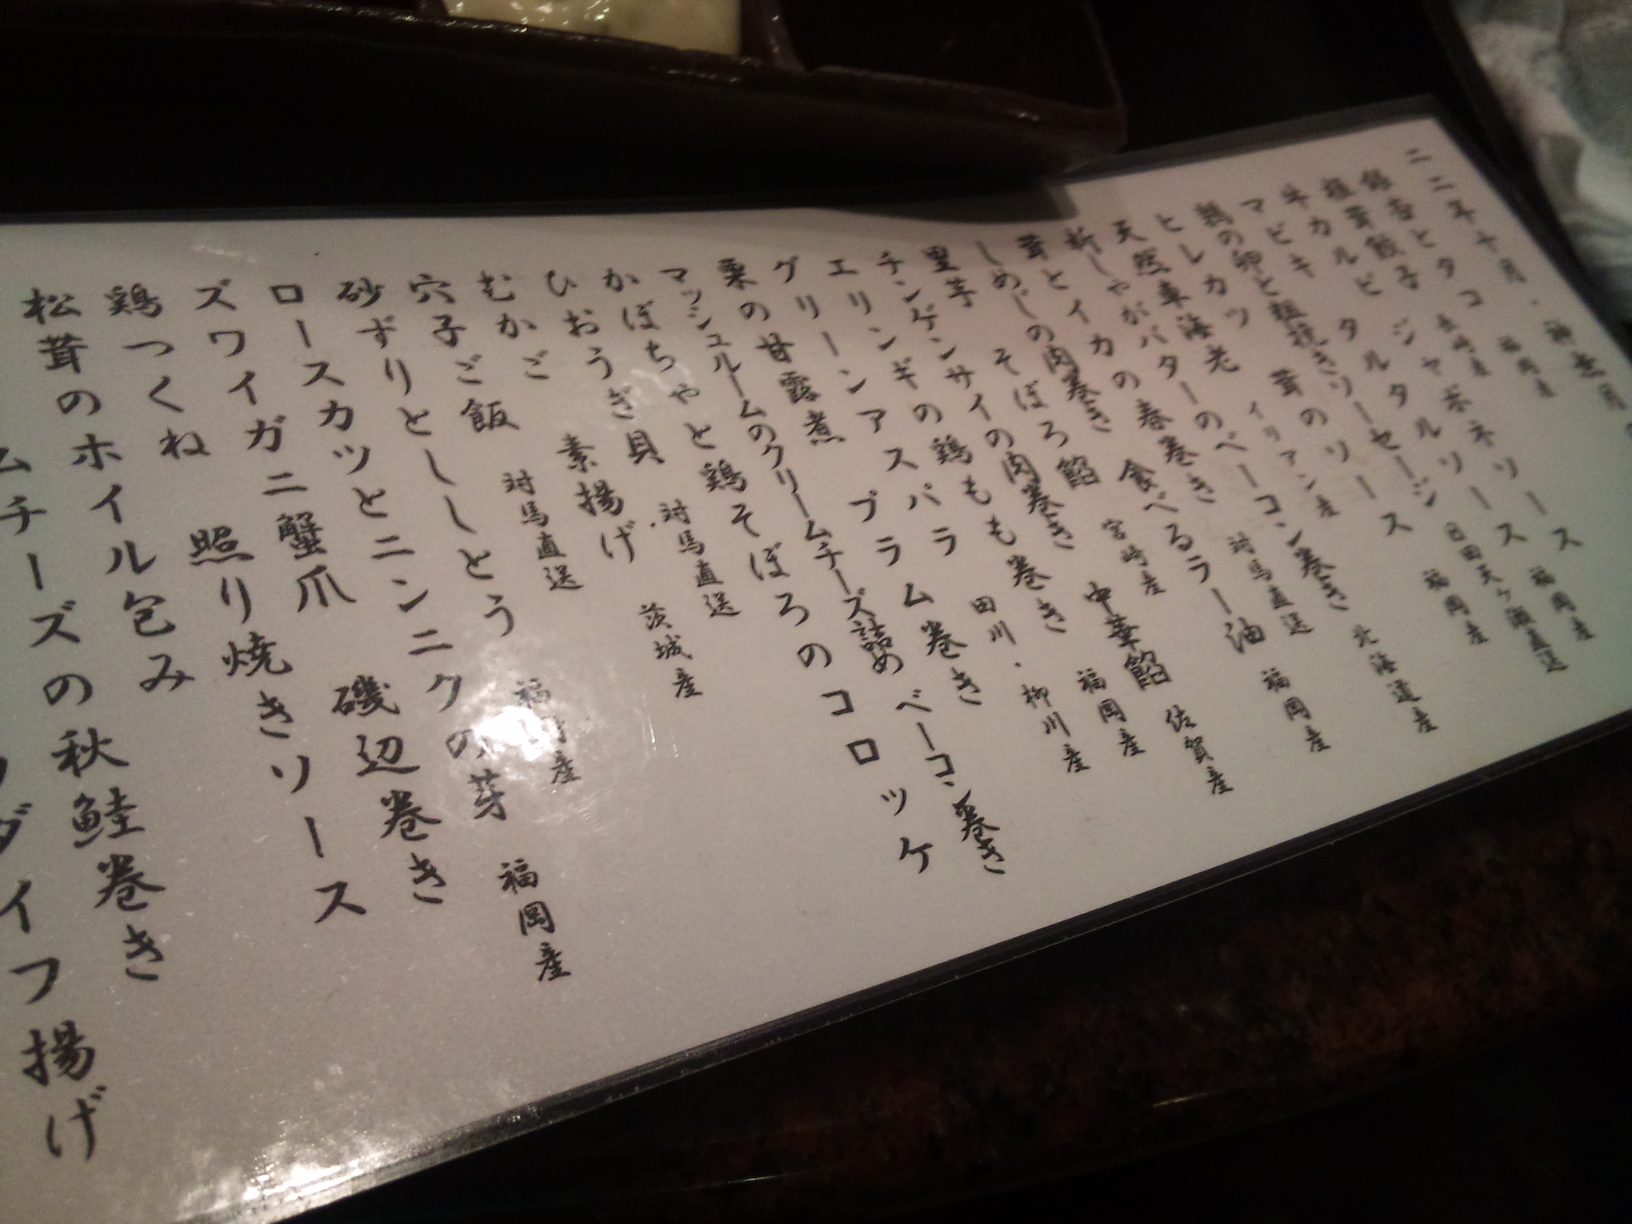 二二年十月・神無月
銀杏とタコ ジャポネソース 福岡産
椎茸餃子 タルタルソース 日田天ヶ瀬直送
牛カルビ 福岡産
マビキ
鶏の卵と粗挽きソーセージ
ヒレカツ 茸のソース
天然車海老 イリアン産
新じゃがバターのベーコン巻き 北海道産
茸とイカの春巻き 食べるラー油 福岡産
しめじの肉巻き 宮崎産
里芋 そぼろ餡 中華餡 佐賀産
チンゲンサイの肉巻き 福岡産
エリンギの鶏もも巻き 田川・柳川産
グリーンアスパラ プラム巻き
栗の甘露煮
マッシュルームのクリームチーズ詰め ベーコン巻き
かぼちゃと鶏そぼろのコロッケ
ひおうぎ貝 対馬直送
むかご 素揚げ 茨城産
穴子ご飯 対馬直送
砂ずりとししとう
ロースカツとニンニクの芽 福岡産
ズワイガニ蟹爪 磯辺巻き
鶏つくね 照り焼きソース
松茸のホイル包み
ムチーズの秋鮭巻き
ダイフ揚げ